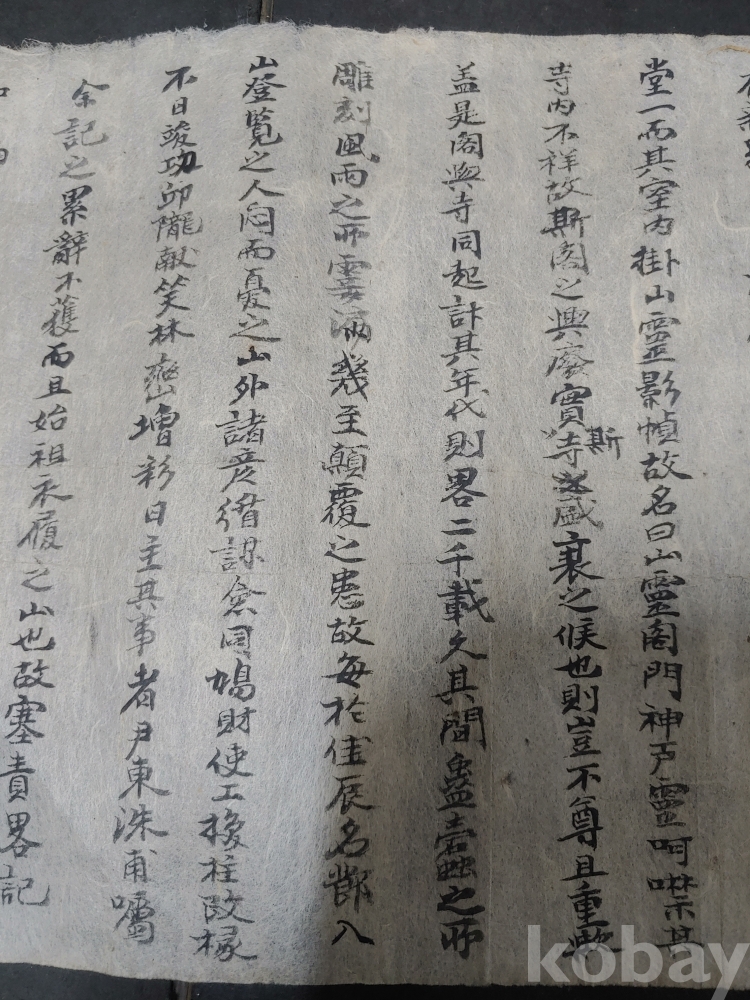 堂一而其室內掛山靈影幀故名曰山靈閣門神戶靈呵噤其
寺內不祥故斯閣之興廢實斯寺盛衰之候也則豈不尊且重歟
盖是閣與寺同起計其年代則畧二千載久其間蠱蠹之所
雕刻風雨之所 漏幾至顚覆之患故每於佳辰名節入
山登覽之人悶而憂之山外諸彦 謀僉同鳩財使工換柱改椽
不日竣功卬隴献笑林巒增彩日主其事者尹東洙甫囑
余記之累辭不獲而且始祖衣履之山也故塞責畧記
kobay